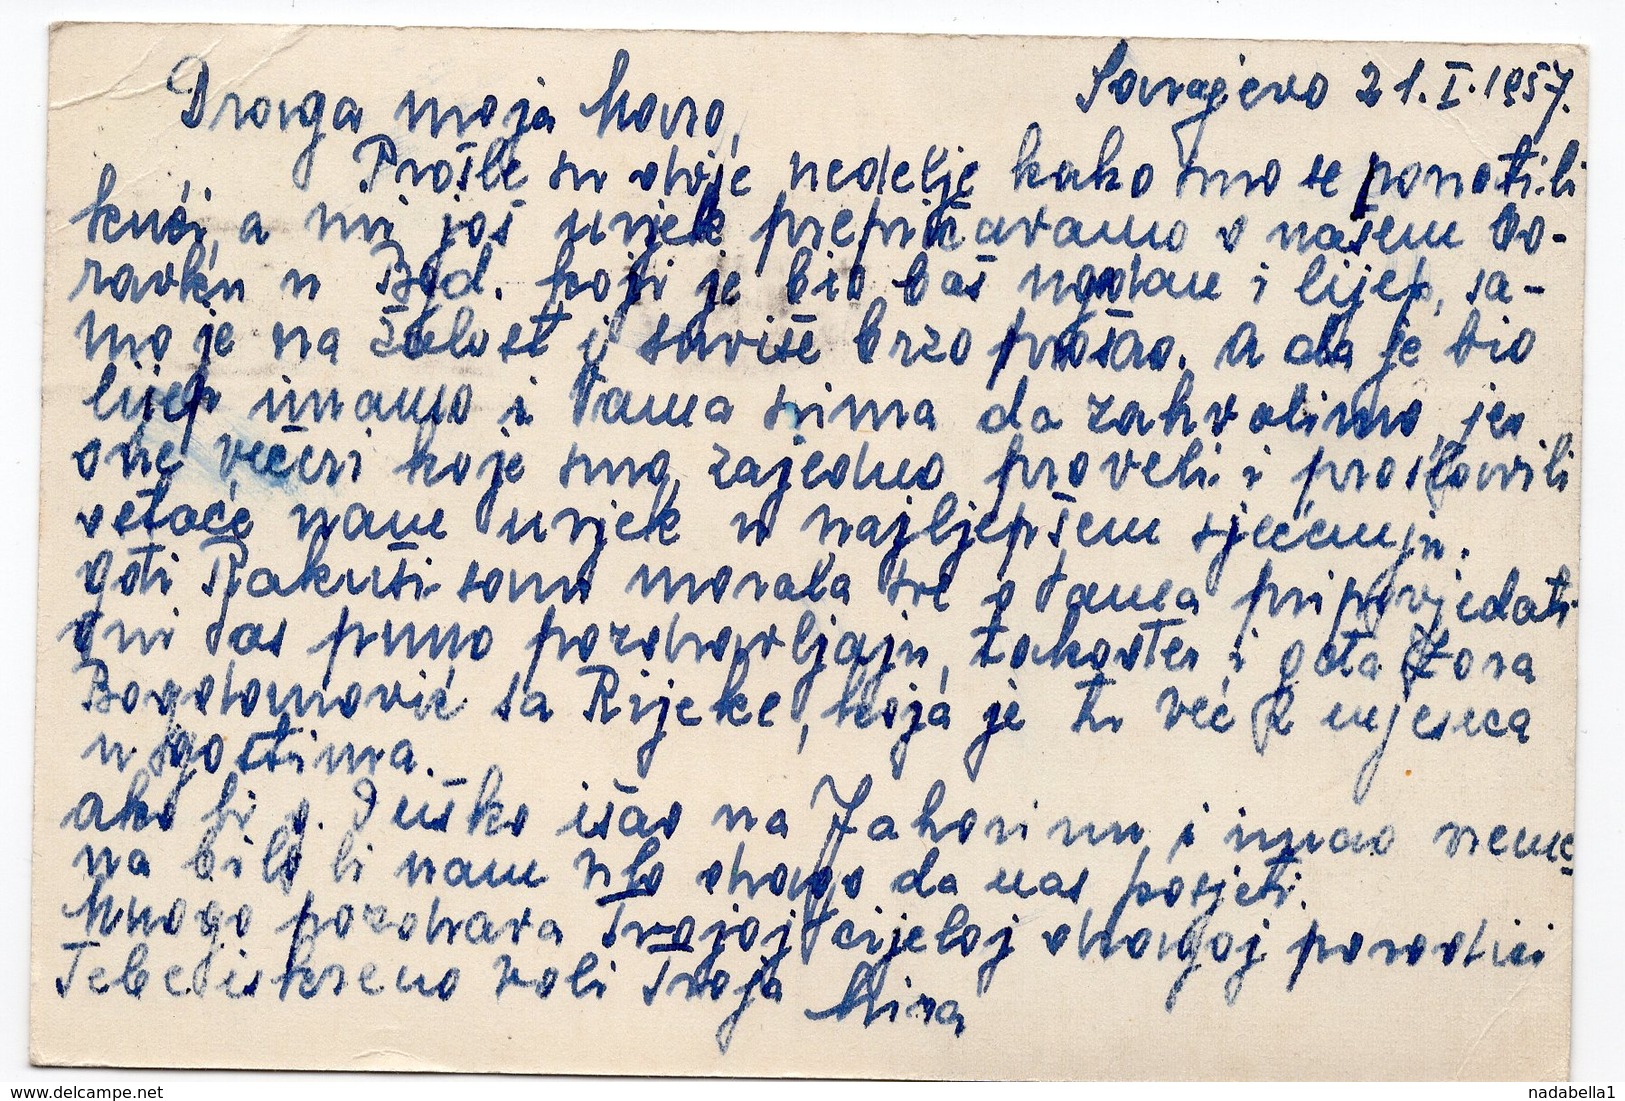 Sarajevo 21.I.1957.
Draga moja Maro,
Prošle su dvije nedelje kako smo se ponatili
kući, a mi još uvjek prepričavamo o našem bo-
ravku u Bgd. koji je bio baš ugodan i lijep, sa-
mo je na žalost i suviše brzo prošao. A da je bio
lijep imamo i Vama svima da zahvalimo, jer
one večeri koje smo zajedno proveli i proslavili
ostaće nam uvjek u najljepšem sjećanju.
Goti Rakuši sam morala sve o Vama pripovjedati
Oni Vas puno pozdravljaju, također i gđa Zora
Bogdanović sa Rijeke, koja je tu već 2 mjeseca
u gostima.
Ako bi g. Duško išao na Jahorinu i imao vreme-
na bilo bi nam vrlo drago da nas posjeti.
Mnogo pozdrava Tvojoj cijeloj dragoj porodici
Tebe iskreno voli Tvoja
Mira
nadabella1